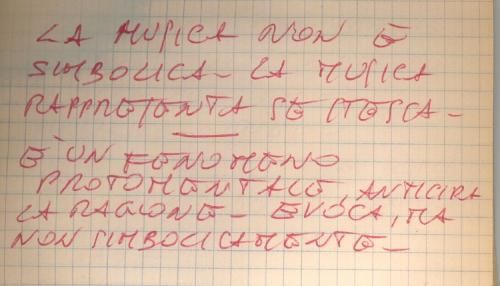 LA MUSICA NON È
SIMBOLICA - LA MUSICA
RAPPRESENTA SE STESSA -
È UN FENOMENO
PROTOMENTALE, ANTICIPA
LA RAGIONE - EVOCA, MA
NON SIMBOLICAMENTE -